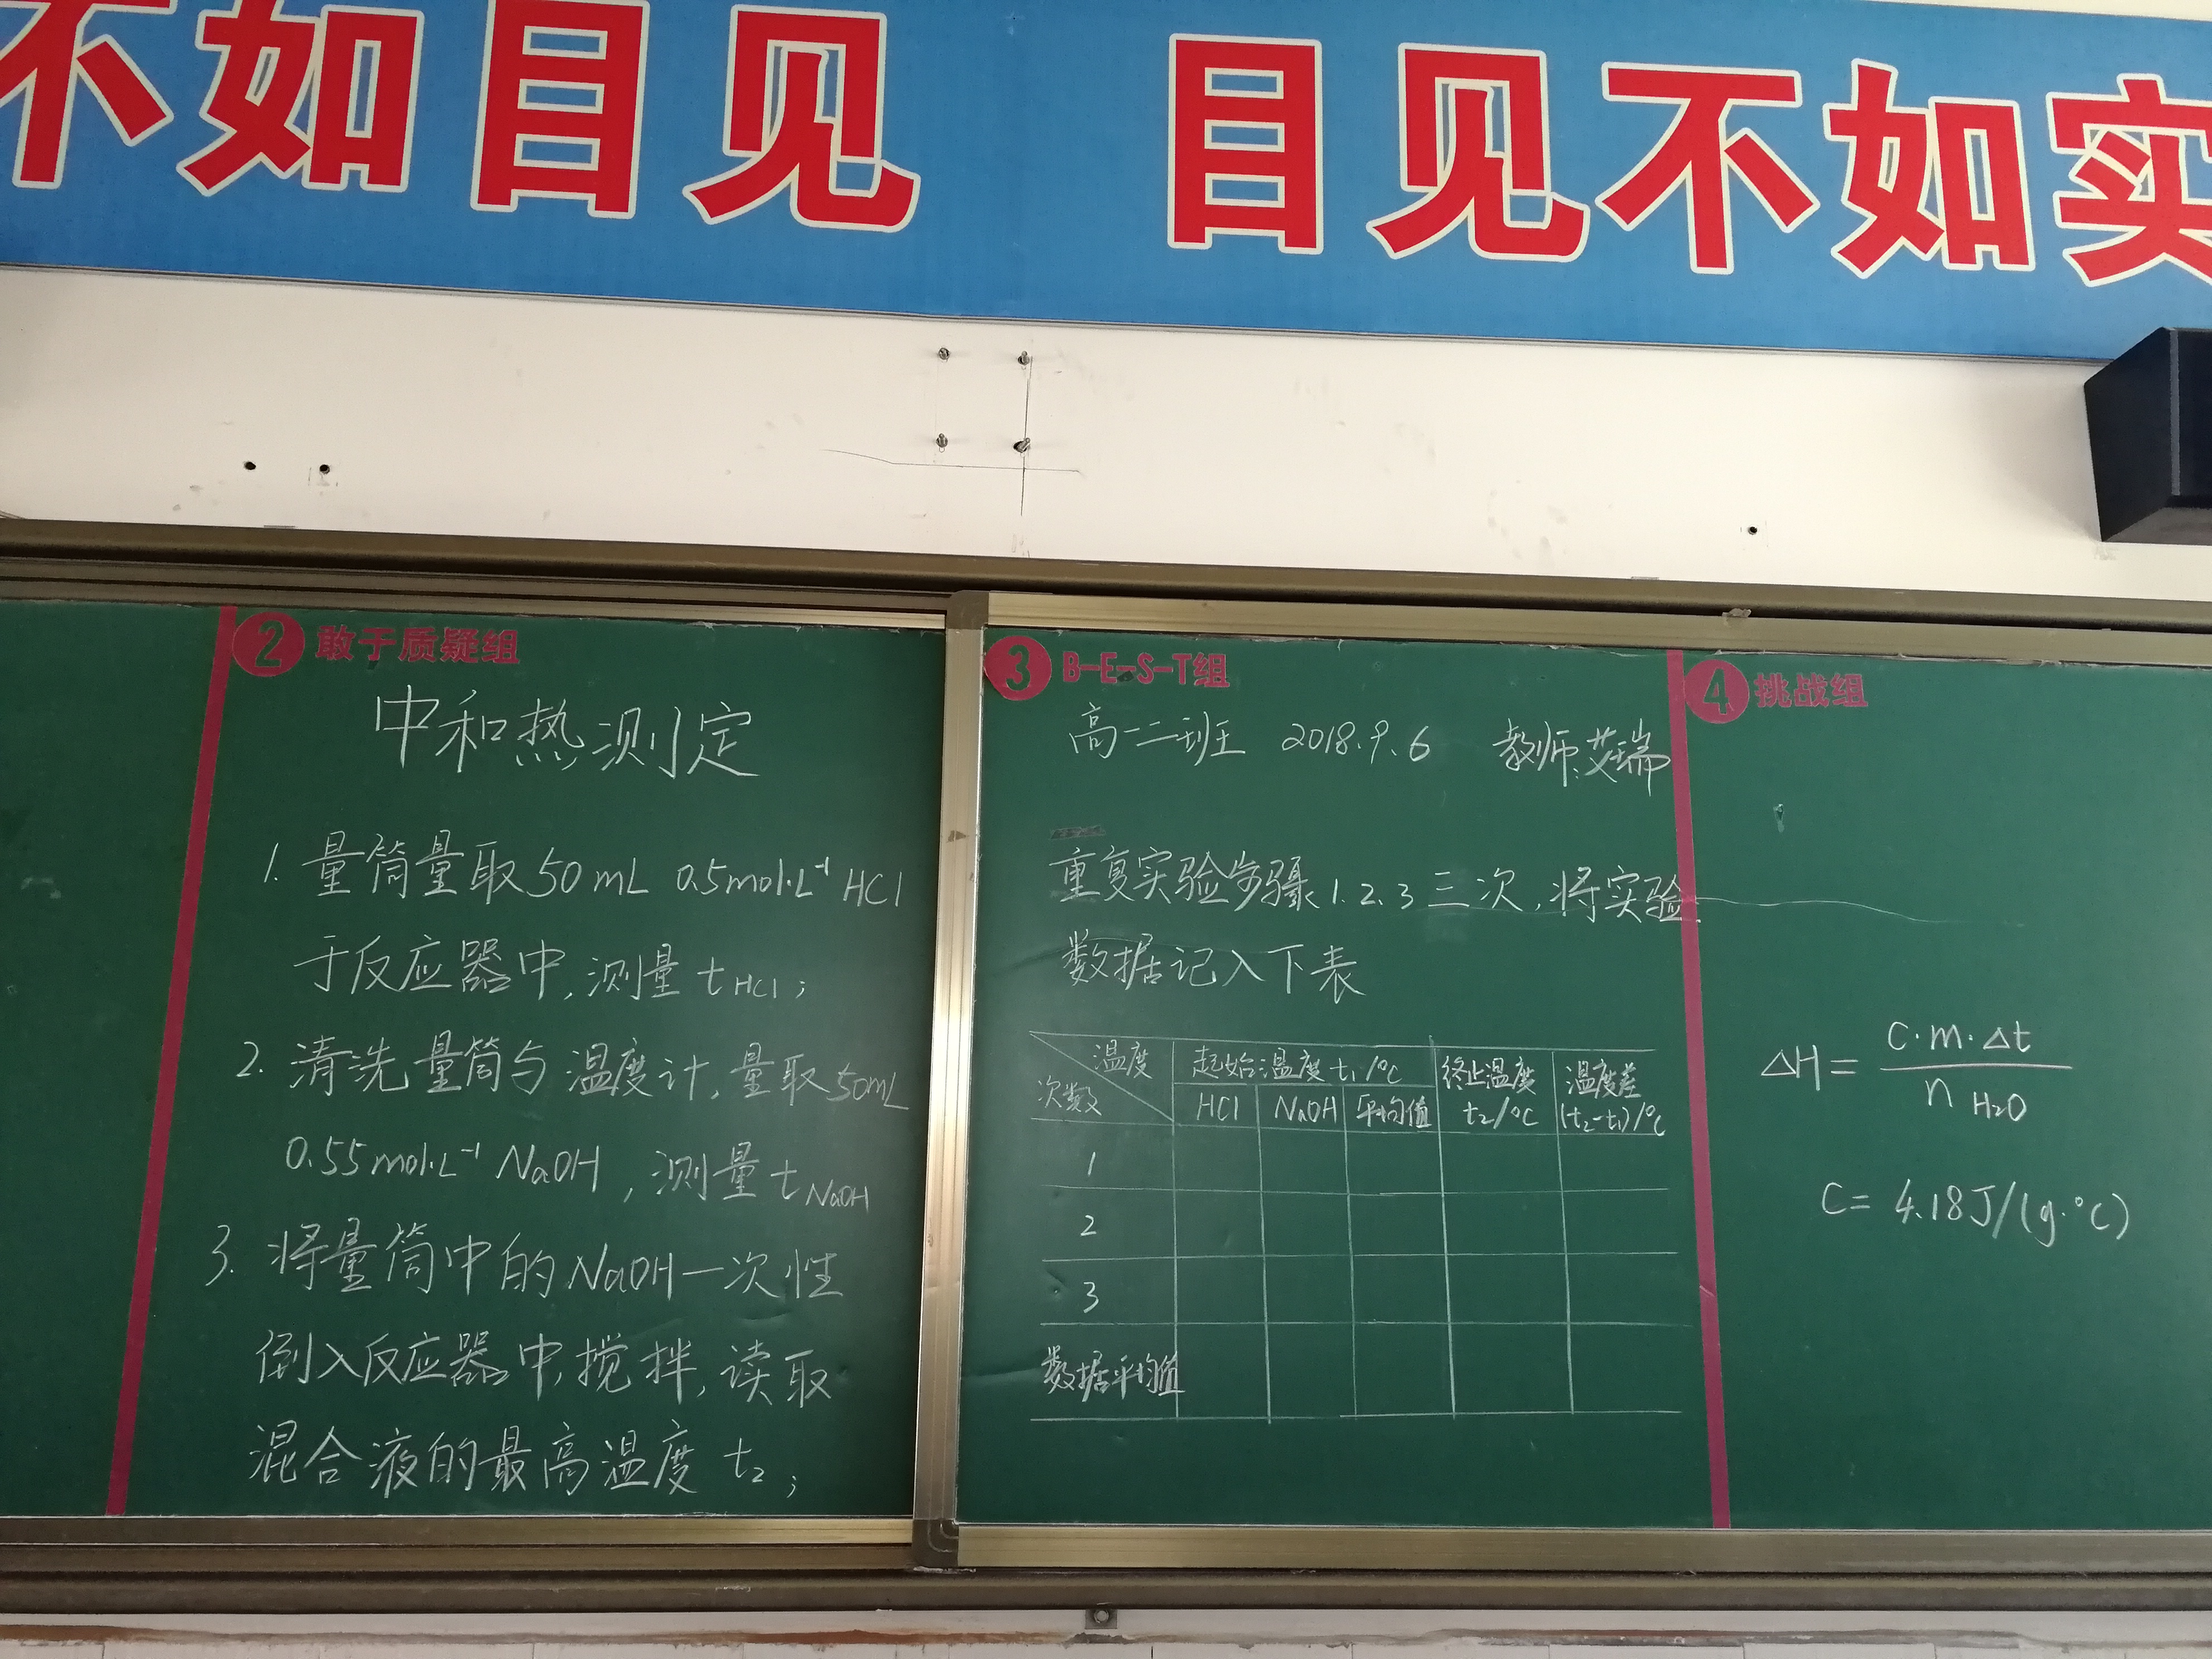 不如目见 目见不如实
2 敢于质疑组
中和热测定
1. 量筒量取50mL 0.5mol·L⁻¹ HCl
于反应器中,测量 t HCl;
2. 清洗量筒与温度计,量取50mL
0.55mol·L⁻¹ NaOH,测量 t NaOH
3. 将量筒中的NaOH一次性
倒入反应器中,搅拌,读取
混合液的最高温度 t₂;
3 B-E-S-T组
高一二班 2018.9.6 教师:艾瑞
重复实验步骤1.2.3三次,将实验
数据记入下表
温度 起始温度 t₁/℃ 终止温度 温度差
次数 HCl NaOH 平均值 t₂/℃ (t₂-t₁)/℃
1
2
3
数据平均值
4 挑战组
△H = c·m·△t / n H₂O
C= 4.18J/(g·℃)